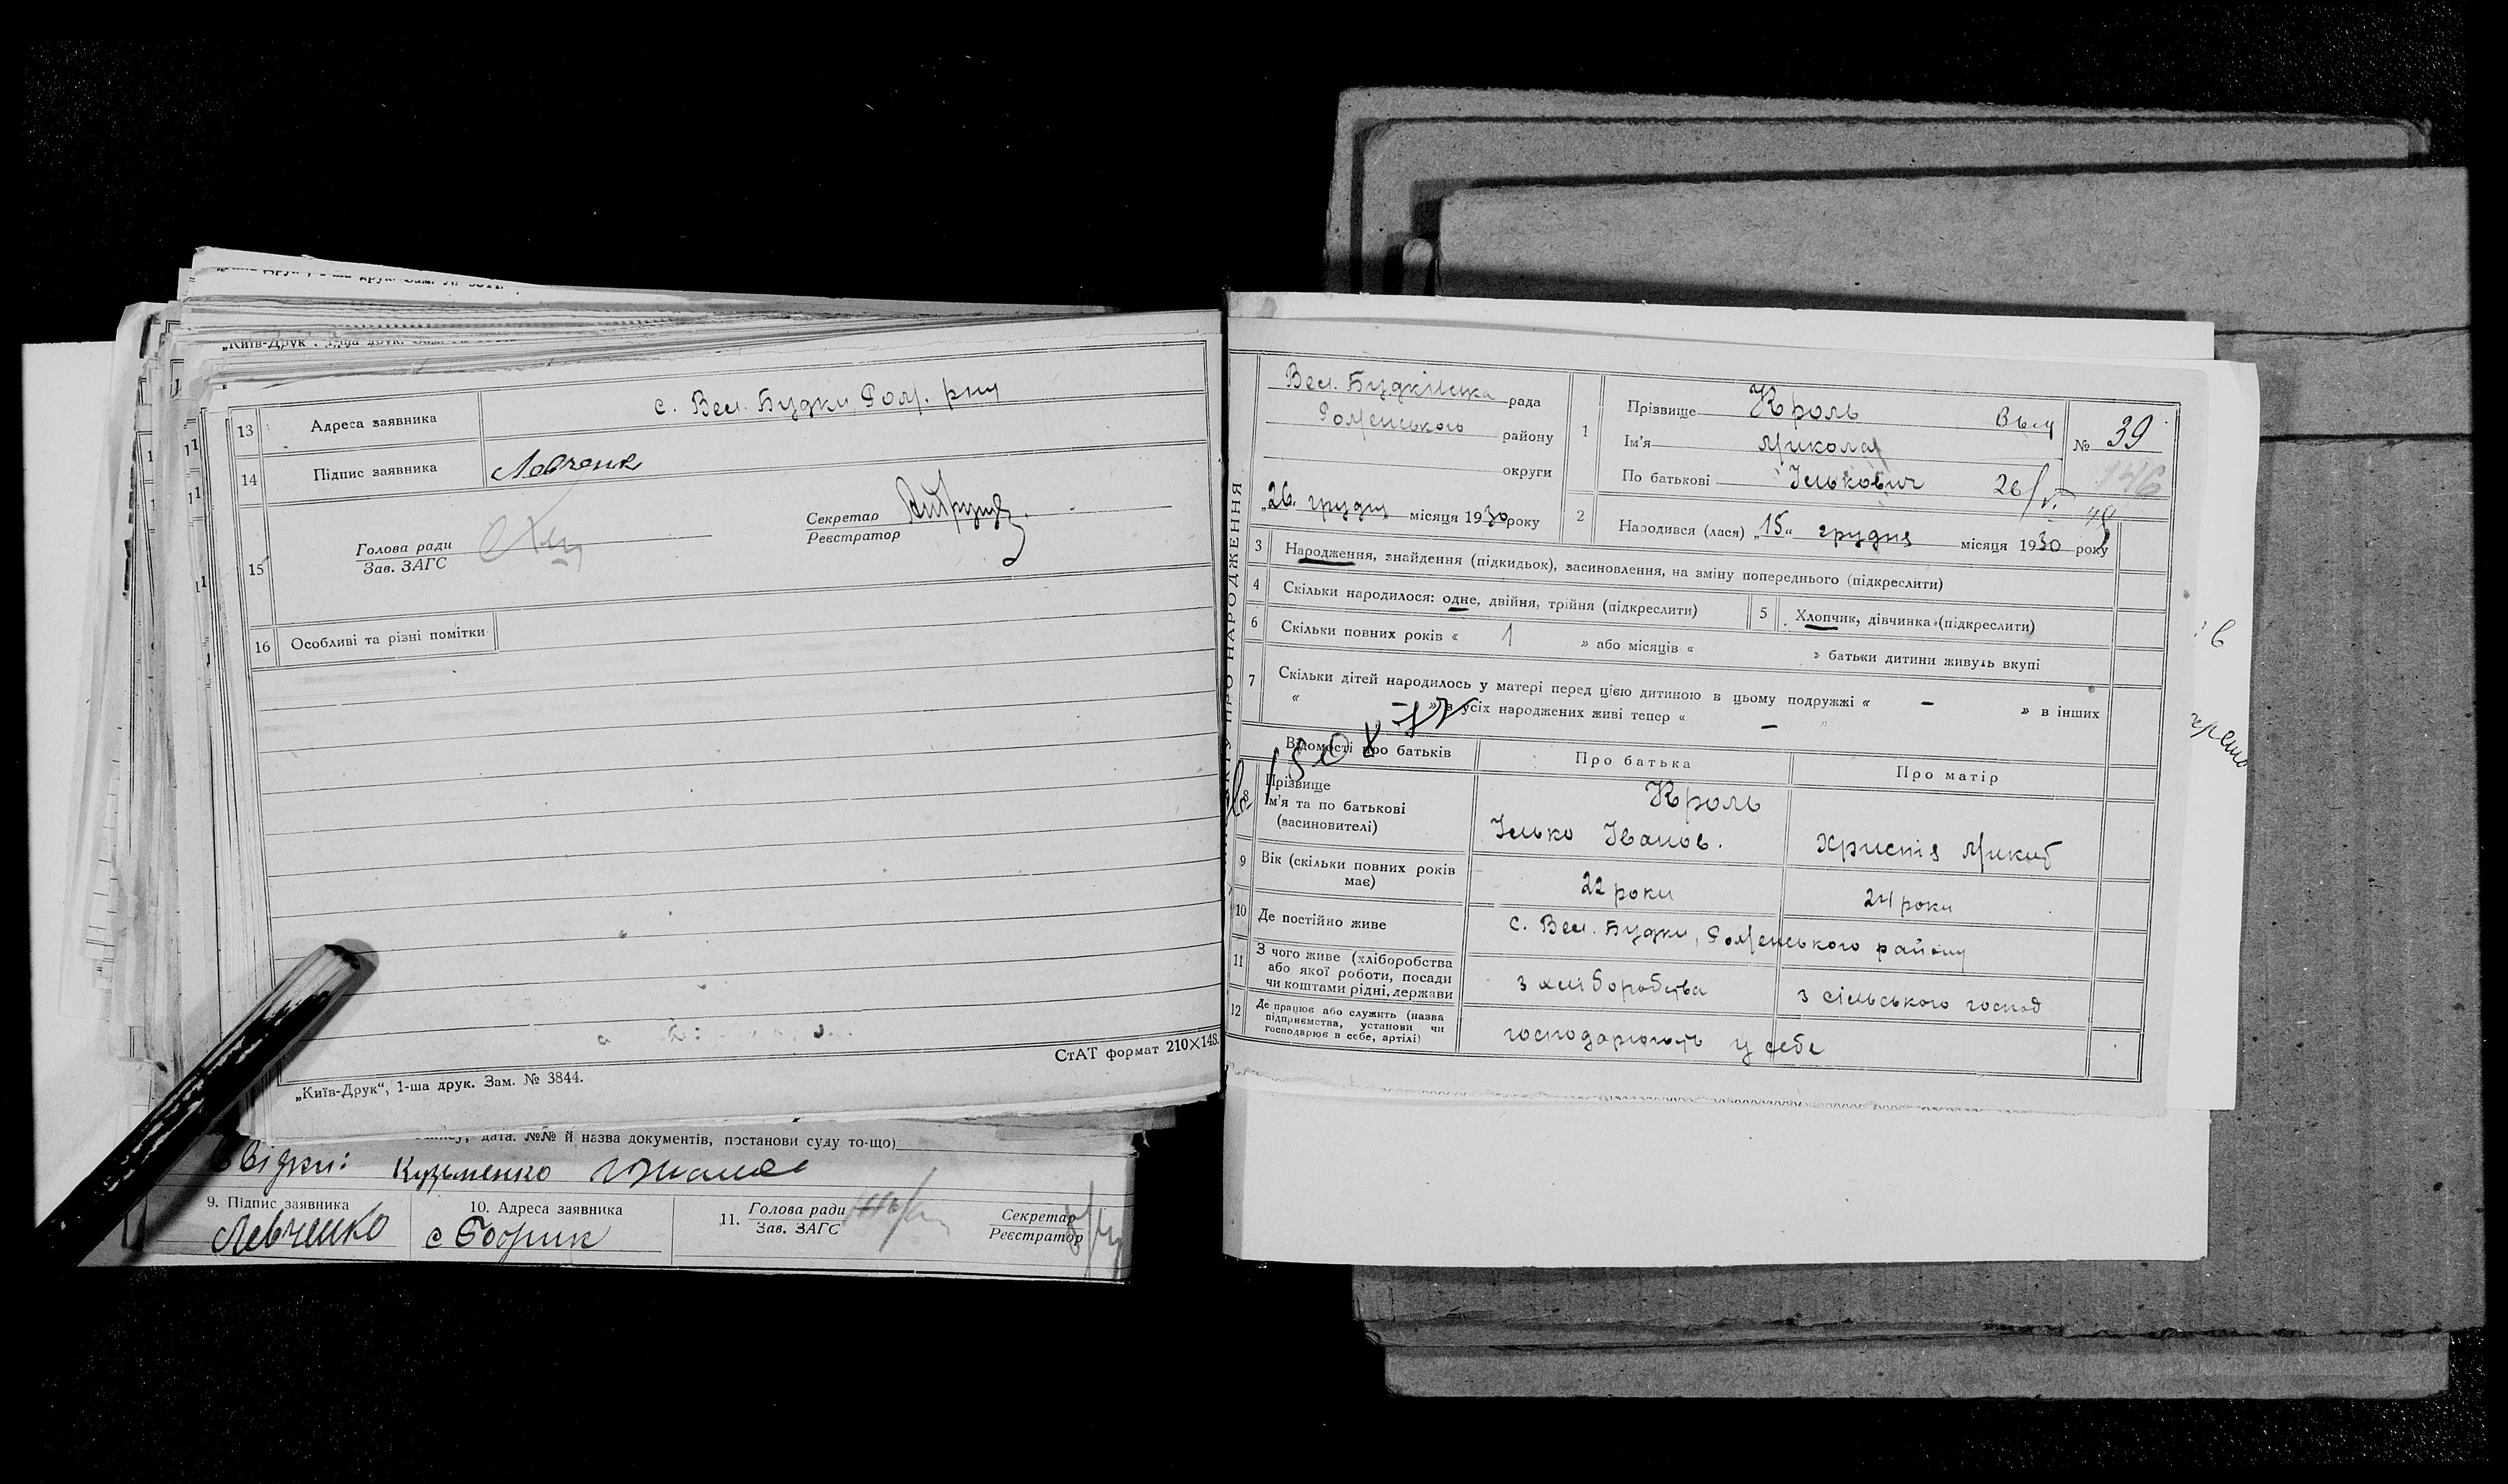 „Київ-Друк“, 1-ша друк.
13 Адреса заявника с. Вел. Будки, Ром. р-ну
14 Підпис заявника Левченк
15 Голова ради Секретар
Зав. ЗАГС Реєстратор
16 Особливі та різні помітки
СтАТ формат 210×148.
„Київ-Друк“, 1-ша друк. Зам. № 3844.
дата. №№ й назва документів, постанови суду то-що)
Свідки: Кузьменко
9. Підпис заявника 10. Адреса заявника 11. Голова ради Секретар
Левченко Зав. ЗАГС Реєстратор
Вел. Будківська рада
Роменського району
округи
26 грудня місяця 1930 року
1 Прізвище Король
Ім'я Микола
По батькові Ількович
№ 39
146
2 Народився (лася) „15“ грудня місяця 1930 року
3 Народження, знайдення (підкидьок), засиновлення, на зміну попереднього (підкреслити)
4 Скільки народилося: одне, двійня, трійня (підкреслити) 5 Хлопчик, дівчинка (підкреслити)
6 Скільки повних років « 1 » або місяців « » батьки дитини живуть вкупі
7 Скільки дітей народилось у матері перед цією дитиною в цьому подружжі « – » в інших
« – » з усіх народжених живі тепер « – »
Відомості про батьків Про батька Про матір
8 Прізвище Король
Ім'я та по батькові
(васиновителі) Ілько Іванов. Христя Микит
9 Вік (скільки повних років має) 22 роки 24 роки
10 Де постійно живе с. Вел. Будки, Роменського району
11 З чого живе (хліборобства
або якої роботи, посади
чи коштами рідні, держави з хліборобства з сільського господ
12 Де працює або служить (назва
підприємства, установи чи
господарює в себе, артілі) господарюють у себе